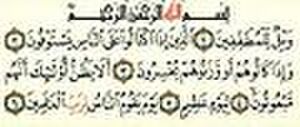 بسم الله الرحمن الرحيم
ويل للمطففين ۝١ الذين إذا اكتالوا على الناس يستوفون ۝٢
وإذا كالوهم أو وزنوهم يخسرون ۝٣ ألا يظن أولئك أنهم
مبعوثون ۝٤ ليوم عظيم ۝٥ يوم يقوم الناس لرب العالمين ۝٦